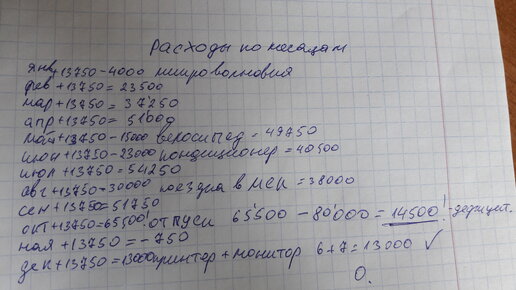 Расходы по месяцам
янв +13750 - 4000 микроволновка
фев +13750 = 23500
мар +13750 = 37250
апр +13750 = 51000
май +13750 - 15000 велосипед = 49750
июн +13750 - 23000 кондиционер = 40500
июл +13750 = 54250
авг +13750 - 30000 поездка в = 38000
сен +13750 = 51750
окт +13750 = 65500! отпуск 65'500 - 80'000 = 14500! - дефицит.
ноя +13750 = - 750
дек +13750 = 13000 принтер + монитор 6+7 = 13000 ✓
0.